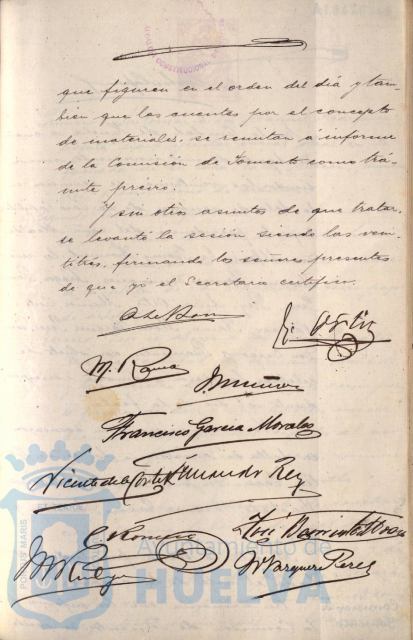 que figuren en el orden del día y tam-
bien que las cuentas por el concepto
de materiales, se remitan á informe
de la Comisión de Fomento como trá-
mite previo.
Y sin otros asuntos de que tratar,
se levantó la sesión siendo las vein-
titrés, firmando los señores presentes
de que yo el Secretario certifico.
Francisco Garcia Morales
Vicente de la Corte Fernando Rey
C. Romero José
J. Marquez Perez
PORTUS MARIS
Ayuntamiento de
HUELVA